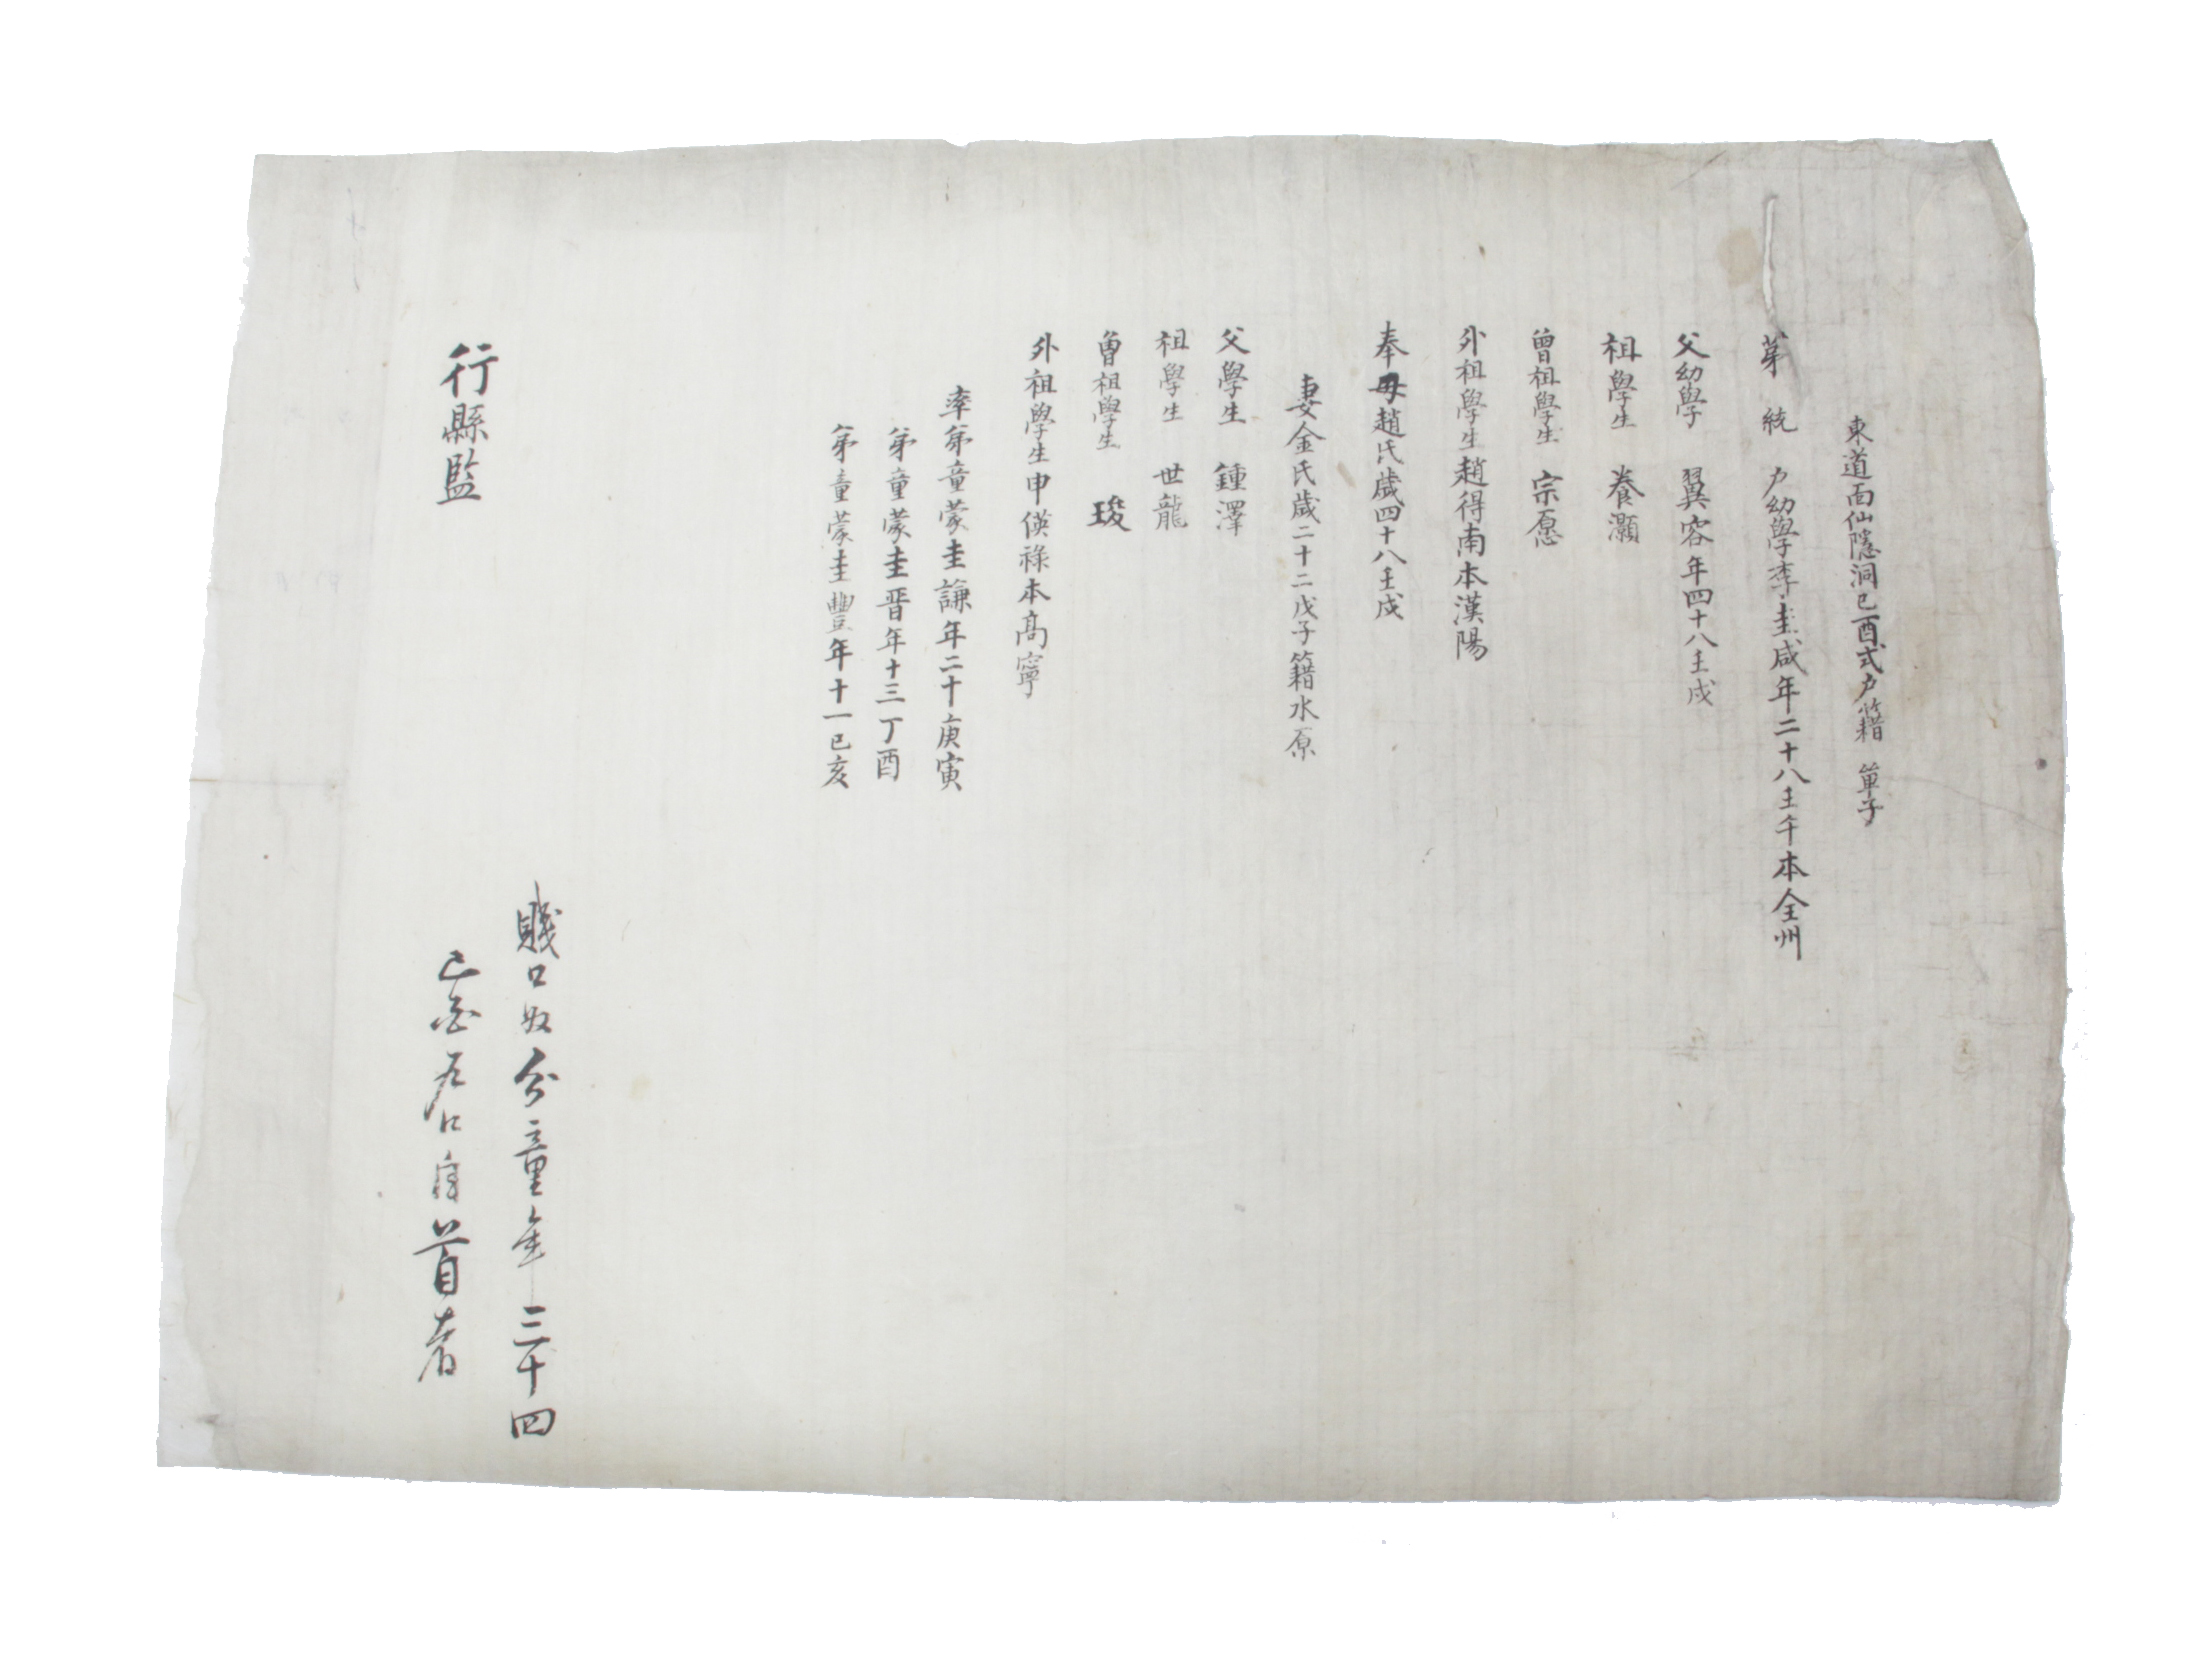 東道面仙隱洞己酉式户籍 單子
苐 統 户幼學李圭咸年二十八壬午本全州
父幼學 翼容年四十八壬戌
祖學生 養灝
曾祖學生 宗愿
外祖學生趙得南本漢陽
奉母趙氏歲四十八壬戌
妻金氏歲二十二戊子籍水原
父學生 鍾澤
祖學生 世龍
曾祖學生 珱
外祖學生申俟祿本高寧
率弟童蒙圭謙年二十庚寅
弟童蒙圭晋年十三丁酉
弟童蒙圭豐年十一己亥
賤口奴分童年三十四
己酉 口 首者
行縣監